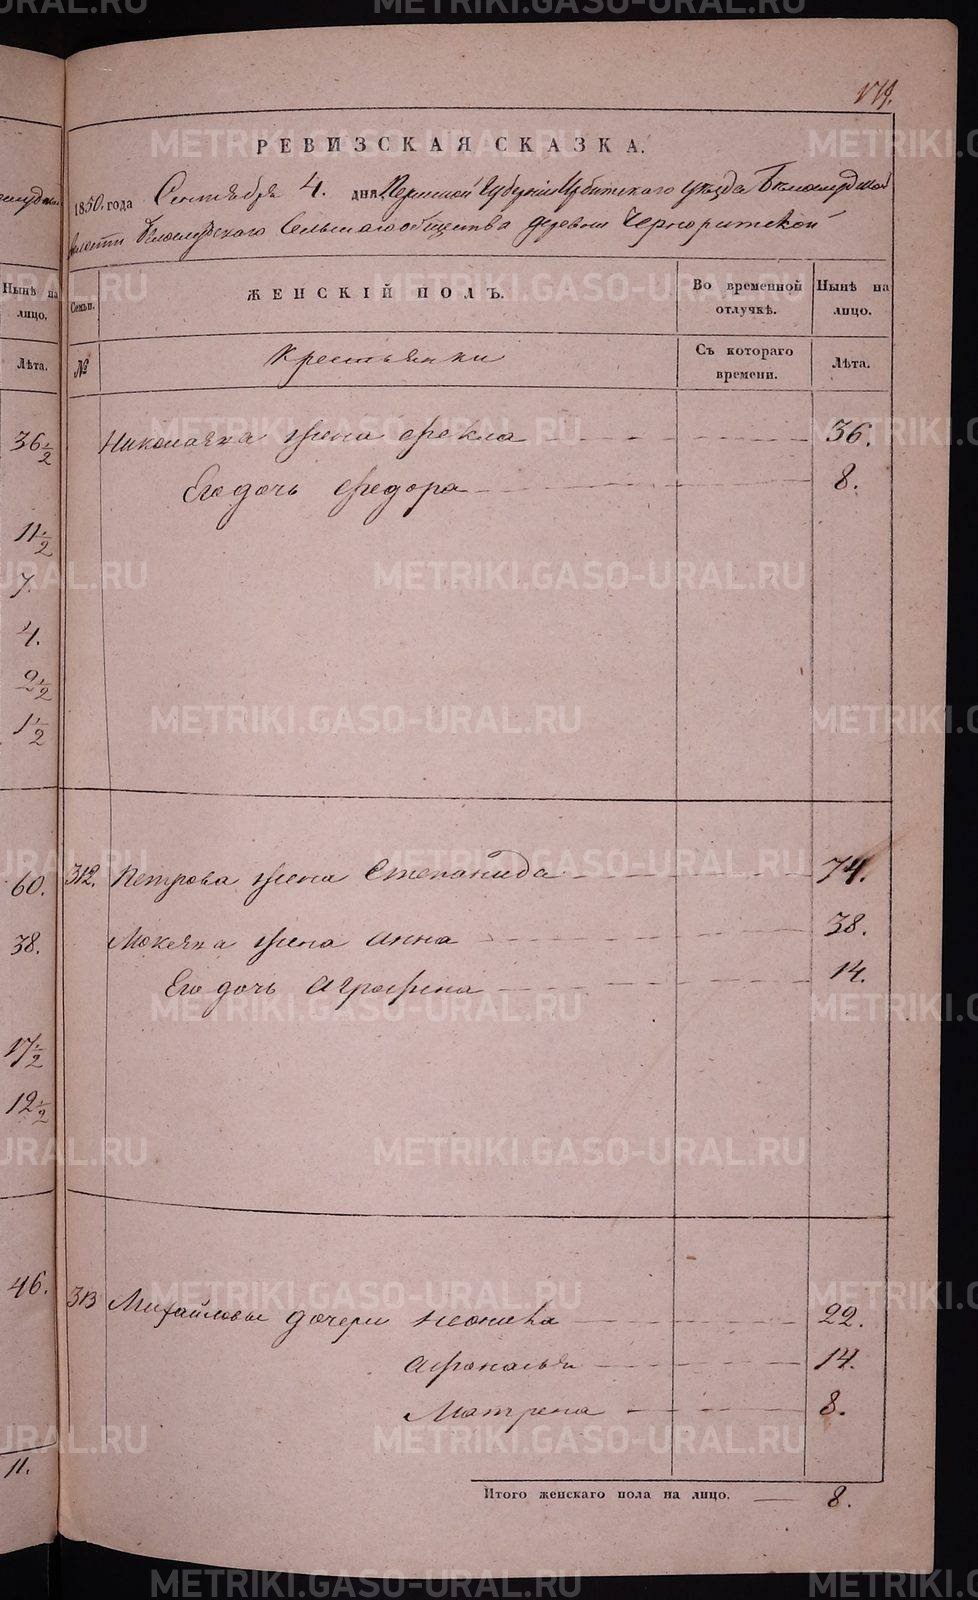 179.
РЕВИЗСКАЯ СКАЗКА.
1850. года Сентября 4. дня Пермской Губернии Ирбитского уезда Белослудской
волости Белослудского Сельского общества деревни Черноритской
Нынѣ на лицо.
Лѣта.
36½
11½
7.
4.
2½
1½
60.
38.
17½
12½
46.
11.
Семьи.
ЖЕНСКІЙ ПОЛЪ.
Во временной отлучкѣ.
Нынѣ на лицо.
№
Крестьянки
Съ котораго времени.
Лѣта.
Николаяка жена Фекла 36.
Его дочь Федора 8.
312. Петрова жена Степанида 74.
Мокеяка жена Анна 38.
Его дочь Аграфена 14.
313 Михайловы дочери Неонила 22.
Афонасья 14.
Матрена 8.
Итого женскаго пола на лицо. 8.
METRIKI.GASO-URAL.RU